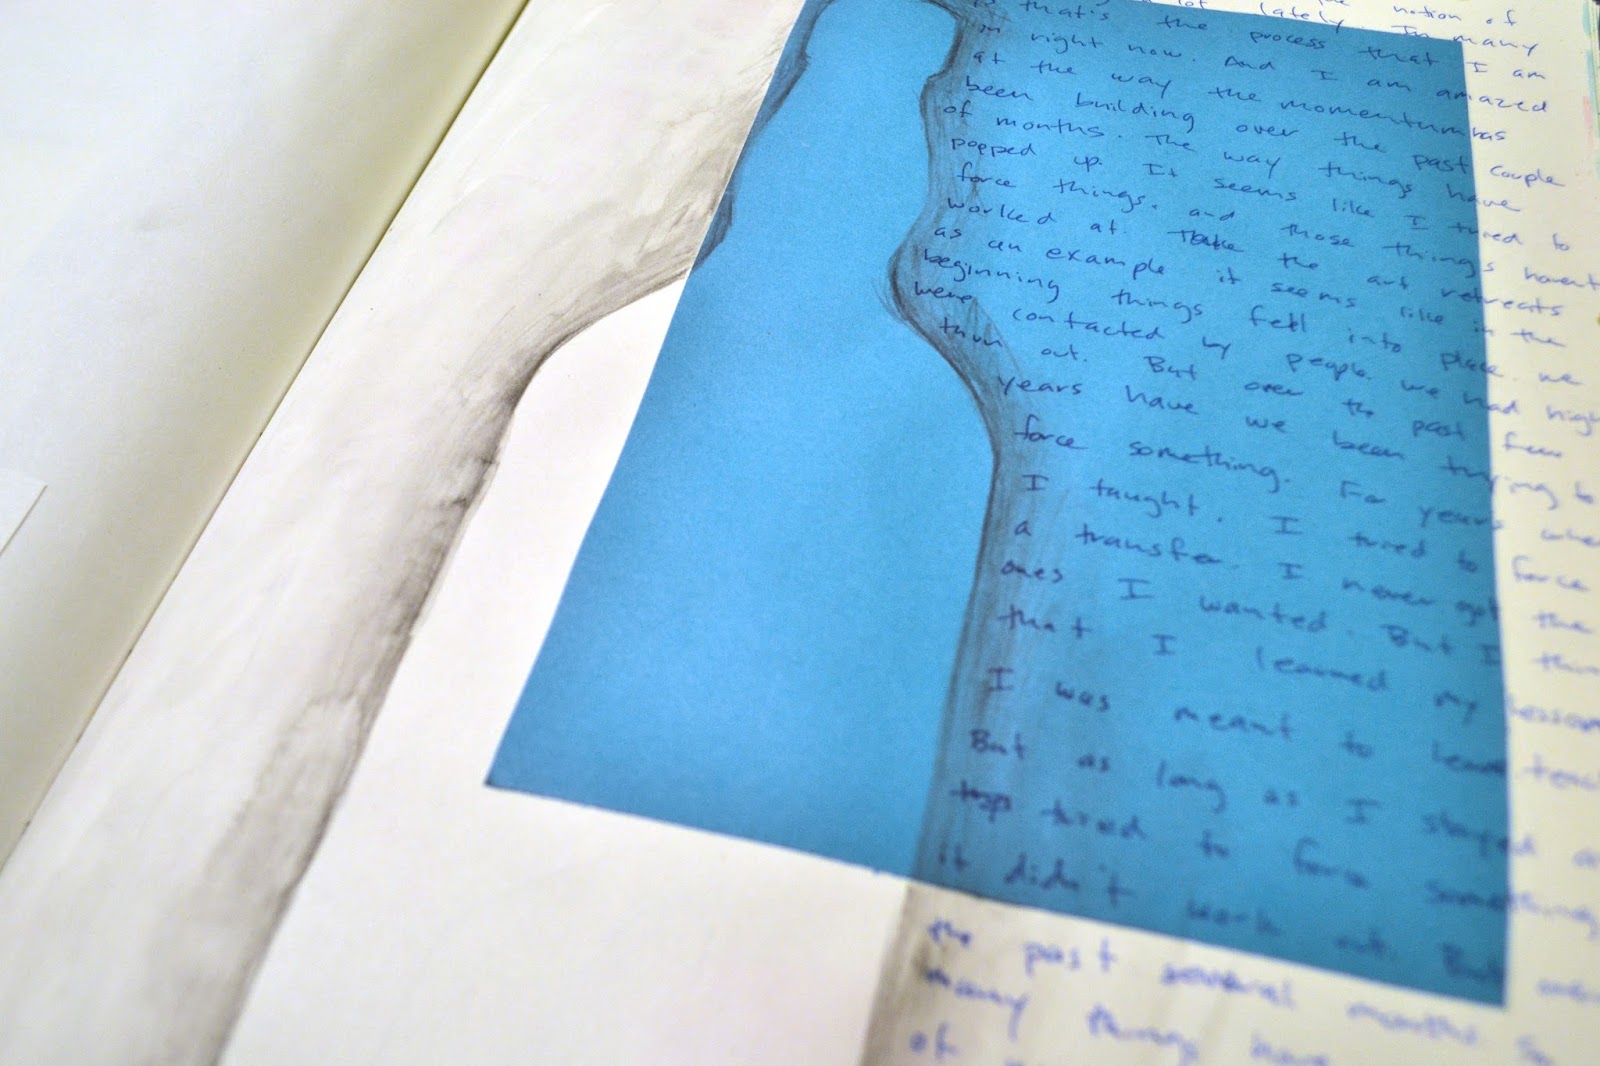 the notion of
lot lately. In many
is that's the process that I am
in right now. And I am amazed
at the way the momentum has
been building over the past couple
of months. The way things have
popped up. It seems like I tried to
force things. and those things havent
worked at. Take the art retreats
as an example it seems like in the
beginning things fell into place. we
were contacted by people. we had high
turn out. But over the past few
years have we been trying to
force something. For years when
I taught. I tried to force
a transfer. I never got the
ones I wanted. But I think
that I learned my lesson
I was meant to teach
But as long as I stayed
tried to force something,
it didn't work out. But over
the past several months so
many things have
of